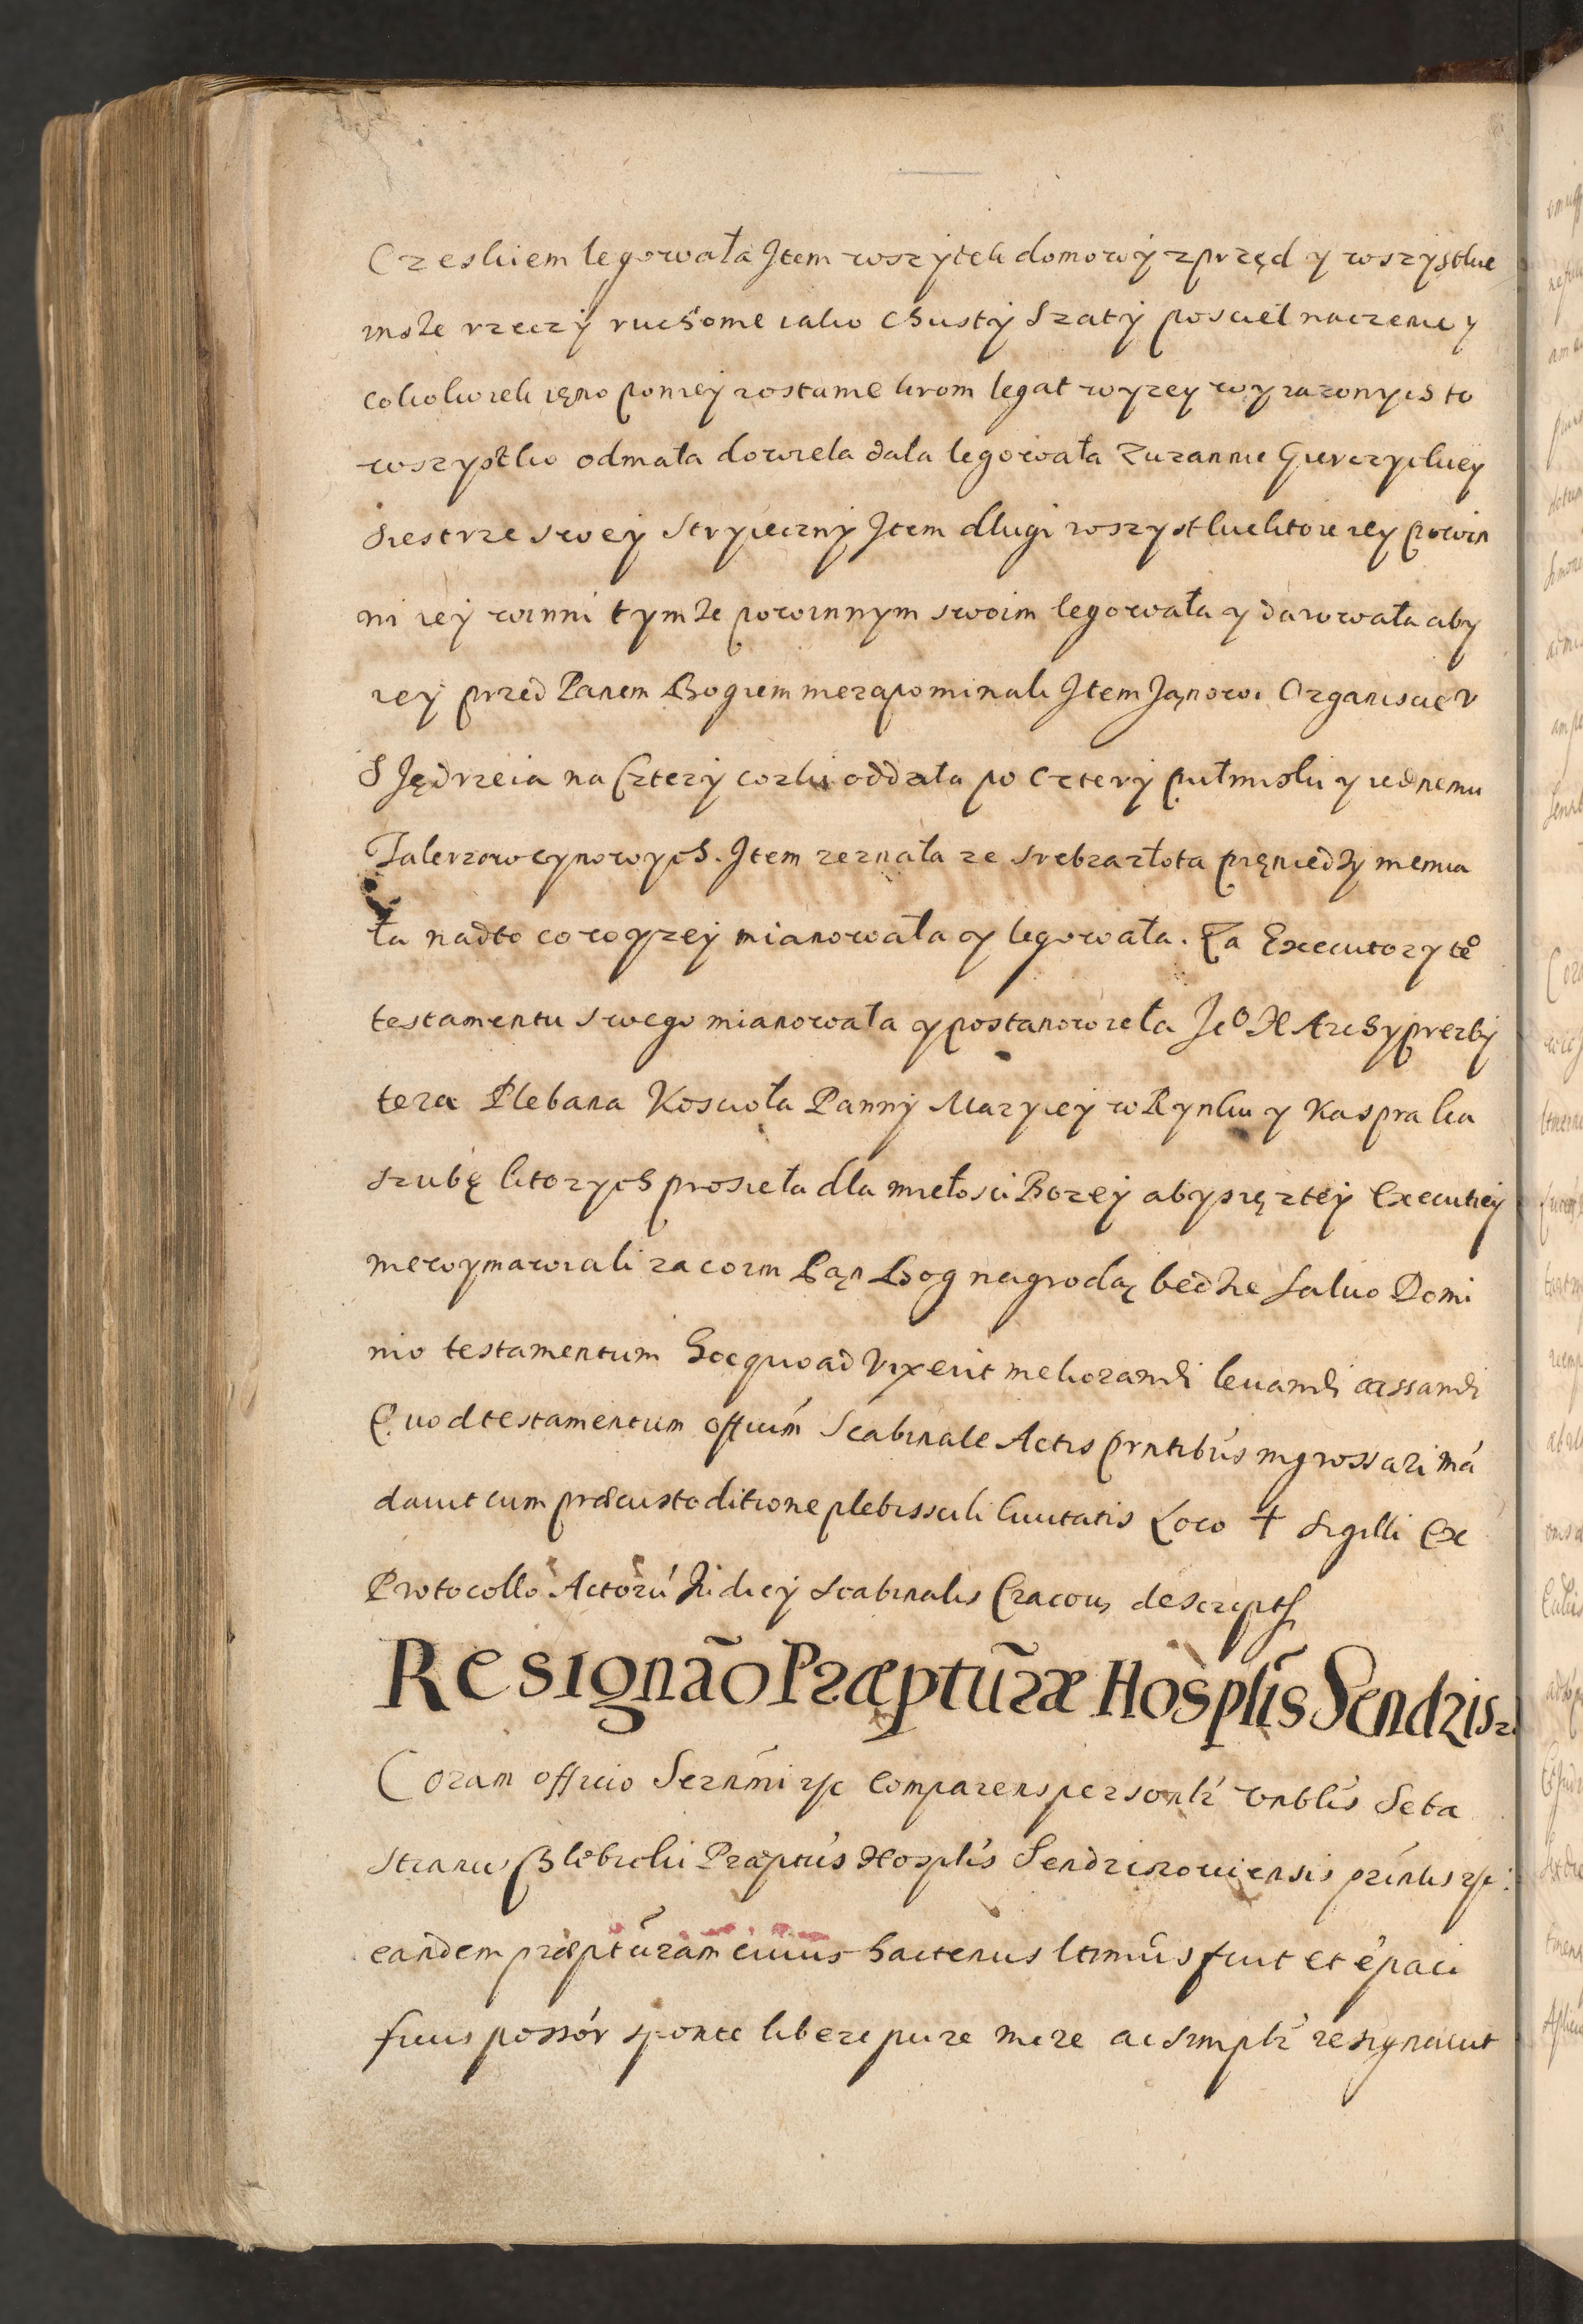 Czeskiem legowała Item wszytek domowy zprzęd y wszystkie
insze rzeczy ruchome iako Chusty Szaty posciel naczenie y
cokolwiek ięno poniey zostanie krom legat wyzey wyrazonych to
wszystko odmała dowiela dała legowała Zuzannie Gierczyckiey
Siestrze swey Stryieczny Item długi wszystkie ktore iey powin
ni iey winni tymże powinnym swoim legowała y darowała aby
iey przed Panem Bogiem niezapominali Item Janowi Organiscie v
S Jędrzeia na Cztery corki oddała po Cztery pułmiski y iednemu
Talerzow cynowych. Item zeznała ze srebra złota pięniedzy niemia
ła nadto co wyzey mianowała y legowała. Za Executory te⁰
testamentu swego mianowała y postanowieła Je⁰ X Archyprezbi
tera Plebana Kosciola Panny Maryiey w Rynku y Kaspra Ka
szubę ktorych prosieła dla miełosci Bozey aby się z tey Executiey
niewymawiali za co im Pan Bog nagrodą będzie Saluo Domi
nio testamentum hoc quoad vixerit meliorandi leuandi cassandi
Quod testamentum officium Scabinale Actis prntibus ingrossari mā
dauit cum præcustoditione plebissciti Ciuitatis Loco + sigilli Ex
Protocollo Actorū Iudicy Scabinalis Cracou, descript
Resignāo Præptūræ Hosplis Sendzis
Coram officio Sernmi rc Comparens personlr Vnblis Seba
stianus Præptus Hosplis Sendzisouiensis prīntis
eandem præptūram cuius hactenus ltimus fuit et
ficus possor sponte libere pure mere ac simplr resignauit